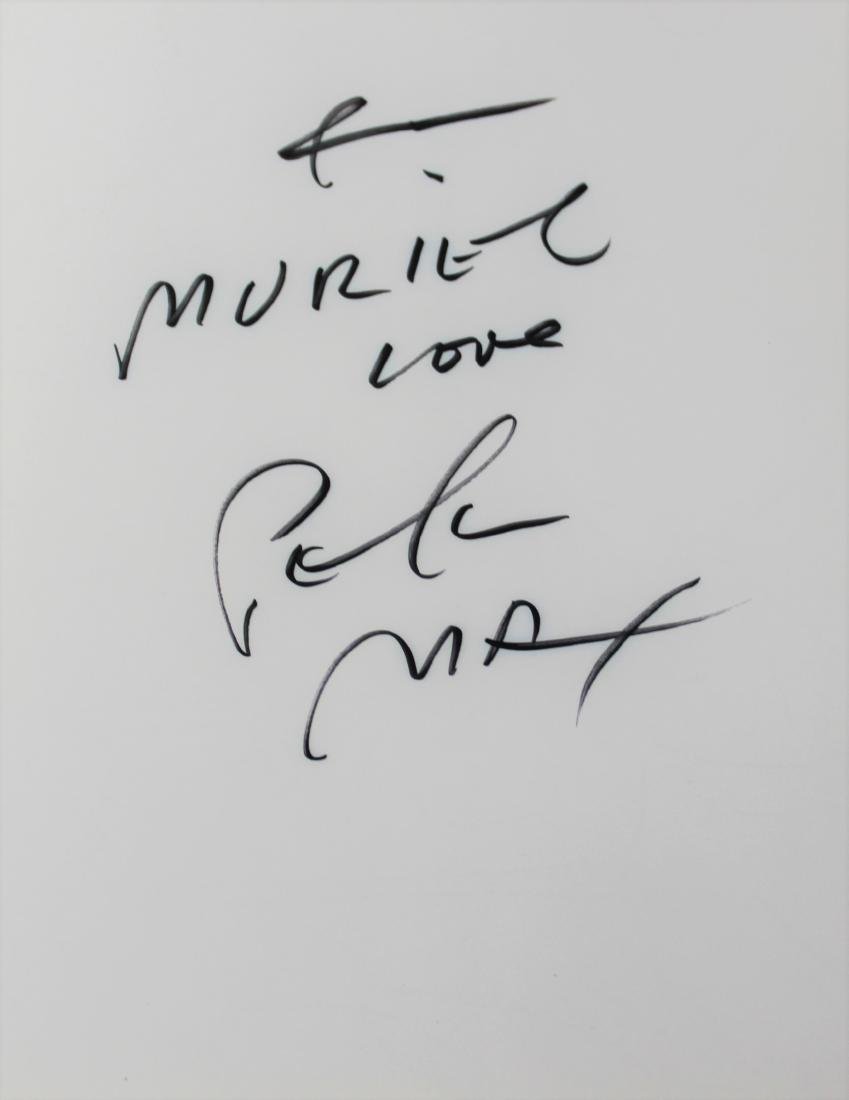 MURIEL
love
Peter
MAX